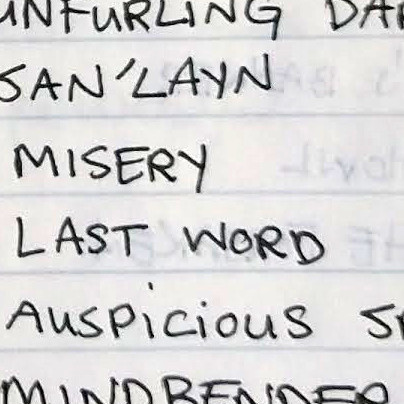 UNFURLING
SAN'LAYN
MISERY
LAST WORD
AUSPiCiOUS
MINDBENDER